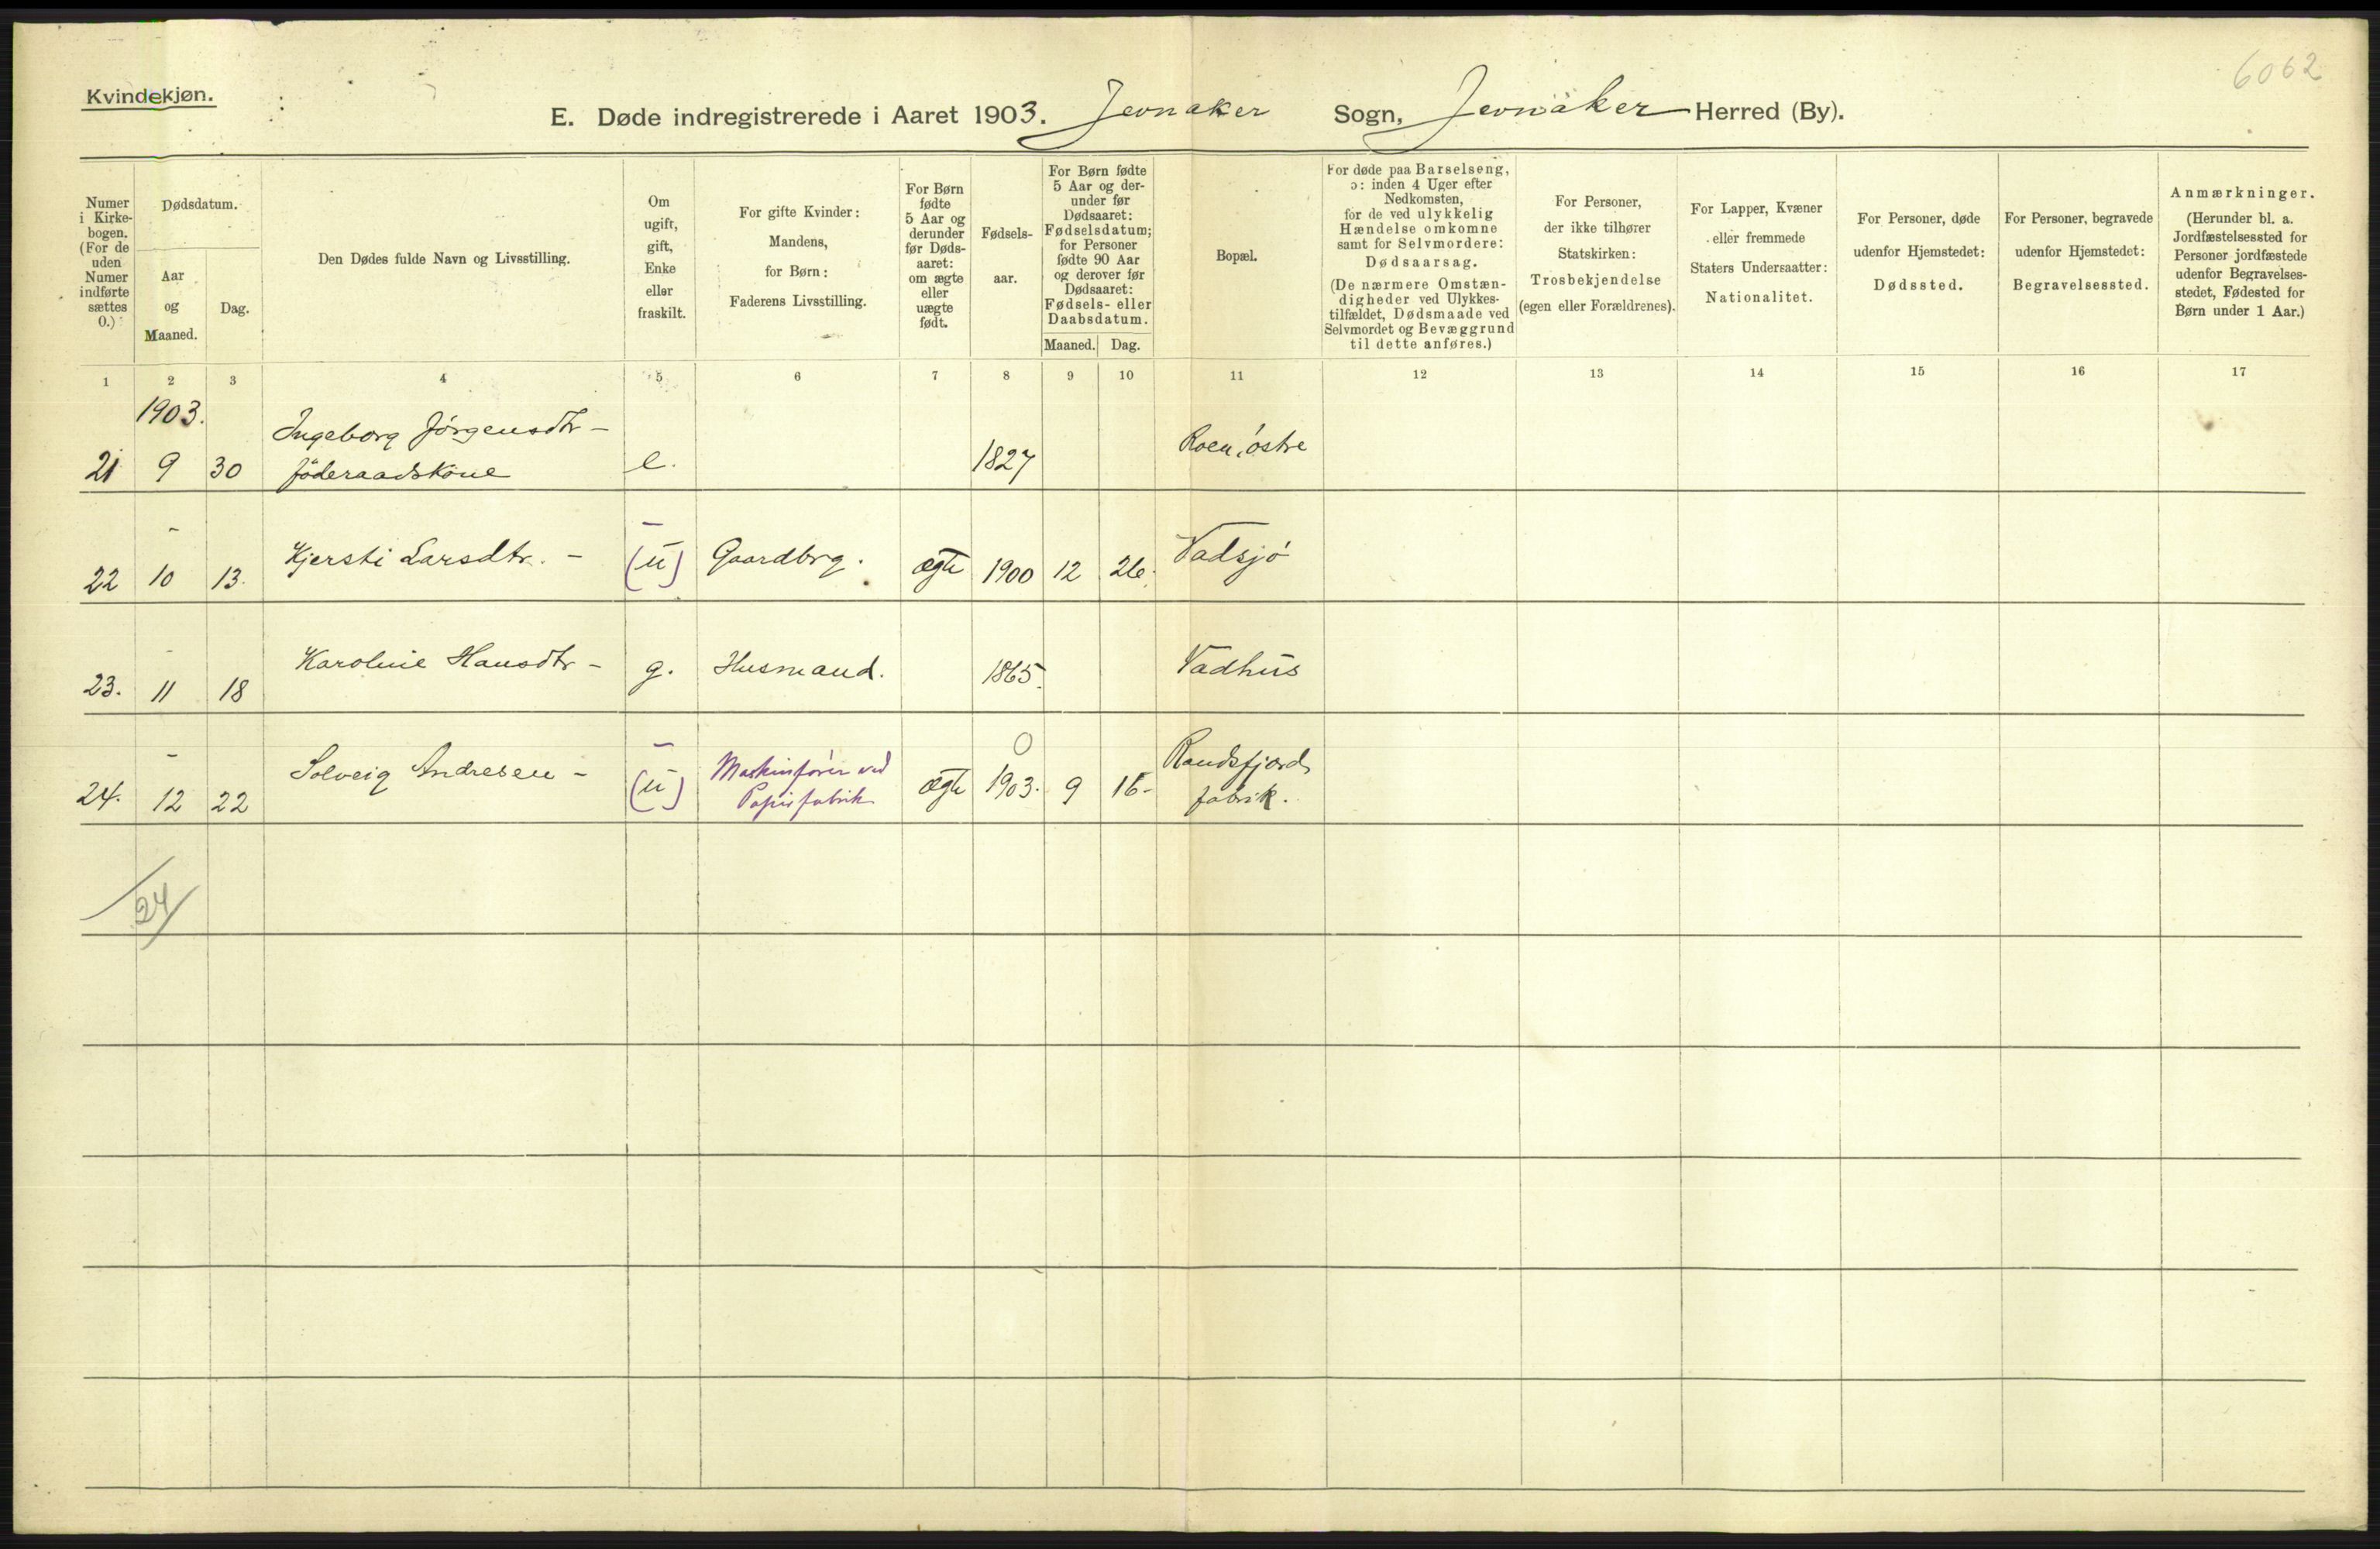 6062
Kvindekjøn.
E. Døde indregistrerede i Aaret 1903. Jevnaker Sogn, Jevnaker Herred (By).
Numer i Kirke-bogen. (For de uden Numer indførte sættes 0.)
Dødsdatum.
Aar og Maaned.
Dag.
Den Dødes fulde Navn og Livsstilling.
Om ugift, gift, Enke eller fraskilt.
For gifte Kvinder: Mandens, for Børn: Faderens Livsstilling.
For Børn fødte 5 Aar og derunder før Døds-aaret: om ægte eller uægte født.
Fødsels-aar.
For Børn fødte 5 Aar og der-under før Dødsaaret: Fødselsdatum; for Personer fødte 90 Aar og derover før Dødsaaret: Fødsels- eller Daabsdatum.
Maaned. Dag.
Bopæl.
For døde paa Barselseng, ɔ: inden 4 Uger efter Nedkomsten, for de ved ulykkelig Hændelse omkomne samt for Selvmordere: Dødsaarsag. (De nærmere Omstæn-digheder ved Ulykkes-tilfældet, Dødsmaade ved Selvmordet og Bevæggrund til dette anføres.)
For Personer, der ikke tilhører Statskirken: Trosbekjendelse (egen eller Forældrenes).
For Lapper, Kvæner eller fremmede Staters Undersaatter: Nationalitet.
For Personer, døde udenfor Hjemstedet: Dødssted.
For Personer, begravede udenfor Hjemstedet: Begravelsessted.
Anmærkninger. (Herunder bl. a. Jordfæstelsessted for Personer jordfæstede udenfor Begravelses-stedet, Fødested for Børn under 1 Aar.)
1 2 3 4 5 6 7 8 9 10 11 12 13 14 15 16 17
1903.
Ingeborg Jörgensdtr -
21 9 30 föderaadskone e. 1827 Roen, östre
-
22 10 13. Kjersti Larsdtr. - (u) Gaardbrg. ægte 1900 12 26. Vadsjö
-
23. 11 18 Karoline Hansdtr - g. Husmand. 1865. Vadhus
- 0
24. 12 22 Solveig Andresen - (u) Maskinfører ved Papirfabrik ægte 1903. 9 15- Randsfjord fabrik.
24